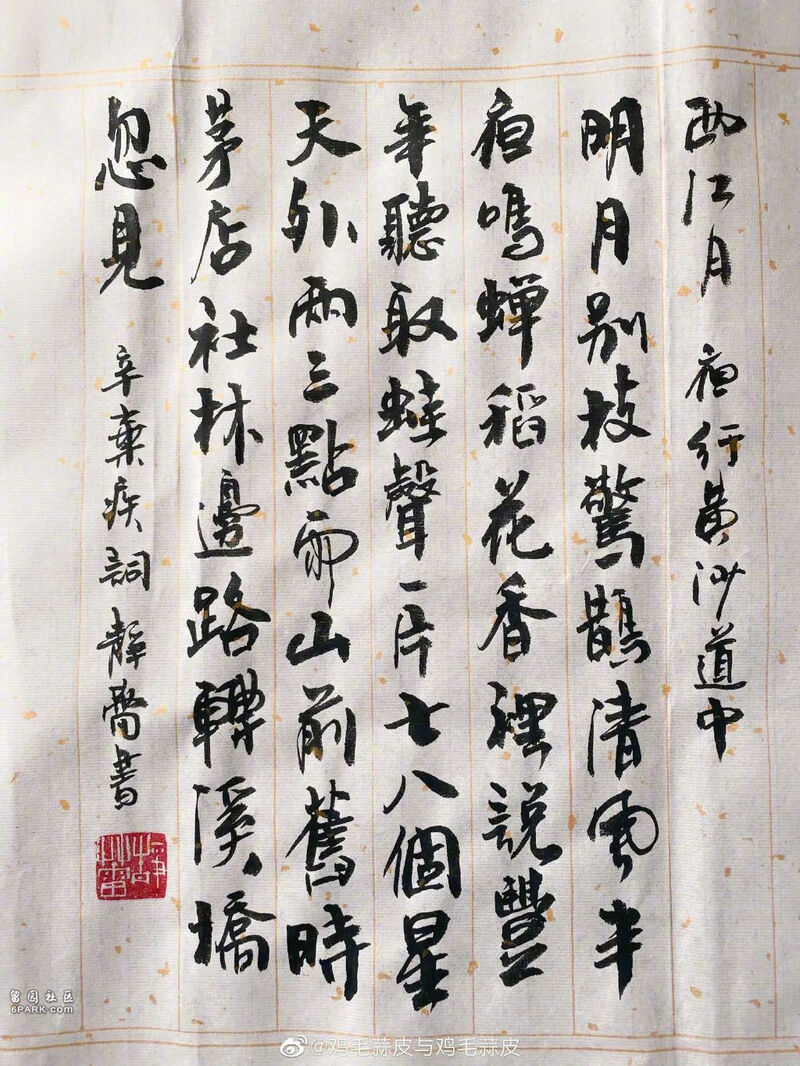 西江月 夜行黄沙道中
明月别枝驚鵲清風半
夜鳴蟬稻花香裡說豐
年聽取蛙聲一片七八個星
天外兩三點雨山前舊時
茅店社林邊路轉溪橋
忽見 辛棄疾詞 靜
書
留园社区
6PARK.COM
@鸡毛蒜皮与鸡毛蒜皮